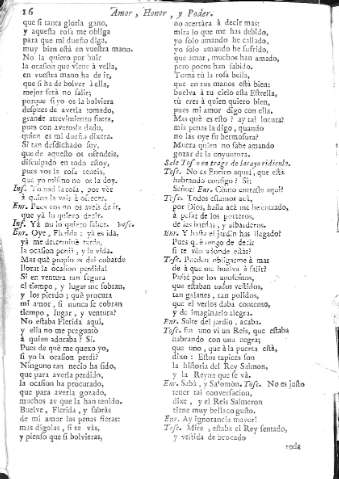 16 Amor, Honor, y Poder.
que si tanta gloria gano,
y aquesta rosa me obliga
para que mi dueño diga,
muy bien està en vuestra mano.
No la quiero por huir
la ocasion que viene à vella,
en vuestra mano ha de ir,
que si ha de bolver à ella,
mejor será no salir;
porque si yo os la bolviera
despues de averla tomado,
grande atrevimiento fuera,
pues con averosla dado,
quien es mi dueño dixera.
Si tan desdichado soy,
que de aquesto os ofendeis,
disculpado en todo estoy,
pues vos la rosa teneis,
que yo mismo no os la doy.
Inf. la rosa, por vèr
à quien la vais à ofrecer.
Enr. Pues con no os aveis de ir,
que yà la quiero decir.
Inf. Yà no lo quiero saber. vase.
Enr. Oye, Flerida: yà es ida,
yà me determinè tarde,
la ocasion perdì, y la vida.
Mas què propio es del cobarde
llorar la ocasion perdida!
Si en ventura tan segura
el tiempo, y lugar me sobran,
y los pierdo; què procura
mi amor, si nunca se cobran
tiempo, lugar, y ventura?
No estaba Flerida aqui,
y ella no me preguntò
à quien adoraba? Sì.
Pues de què me quexo yo,
si yo la ocasion perdì?
Ninguno tan necio ha sido,
que para averla perdido,
la ocasion ha procurado,
que para averla gozado,
muchos ay que la han tenido.
Buelve, Flerida, y sabràs
de mi amor las penas fieras:
mas digolas, si te vàs,
y pienso que si bolvieras,
no acertàra à decir mas:
mira lo que me has debido,
yo solo amando he callado,
yo solo amando he sufrido,
que amar, muchos han amado,
pero pocos han sabido.
Toma tù la rosa bella,
que en tus manos està bien;
buelva à tu cielo esta Estrella,
tù eres à quien quiero bien,
pues mi amor digo con ella.
Mas què es esto? ay tal locura!
mis penas la digo, quando
no las oye su hermosura?
Muera quien no sabe amando
gozar de la coyuntura.
Sale Tosco en trage de lacayo ridiculo.
Tosc. No es Enrico aquel, que està
hablando consigo? Sì;
Señor? Enr. Còmo entraste aqui?
Tosc. Todos estamos acà,
por Dios, hasta acà me he entrado,
à pesar de los porteros,
de las y albarderos.
Enr. Y hasta el jardin has llegado?
Pues què tengo de decir
si te vèn adonde estàs?
Tosc. Pueden obligarme à mas
de à que me buelva à salir?
Pusè por los quadros,
que estaban todos vestidos,
tan galanes, tan polidos,
que el verlos daba contento,
y de imaginarlo alegra.
Enr. Salte del jardin, acaba.
Tosc. fui uno vì un Reis, que estaba
hablando con una negra;
que uno, que à la puerta està,
dixo: Estos tapices son
la historia del Rey Salmon,
y la Reyna que se và.
Enr. Sabà, y Salomon. Tosc. No es justo
tener tal conversacion,
dixe, y el Reis Salmeron
tiene muy bellaco gusto.
Enr. Ay ignorancia mayor!
Tosc. Mire, estaba el Rey sentado,
y vestida de brocado
toda